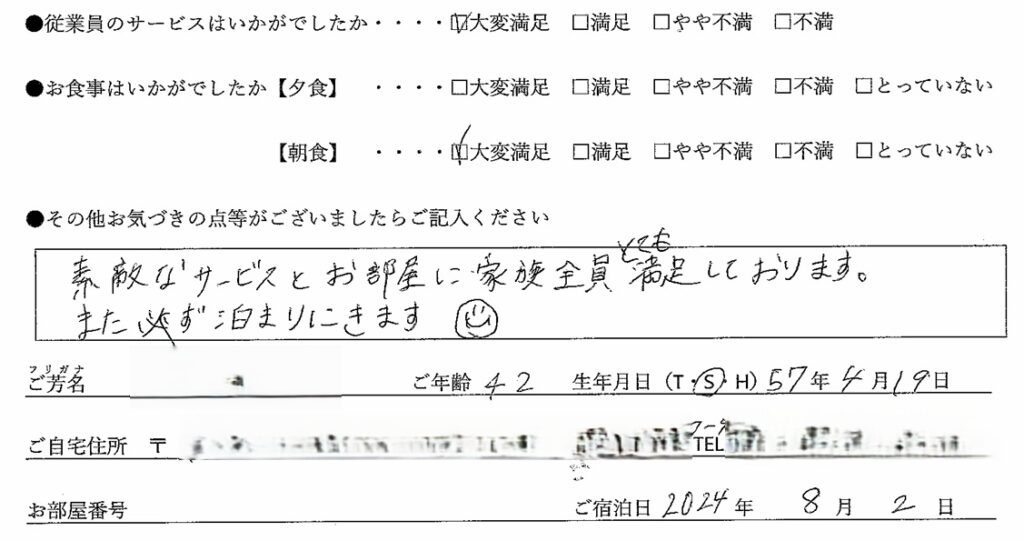 ●従業員のサービスはいかがでしたか・・・・☑大変満足 □満足 □やや不満 □不満
●お食事はいかがでしたか【夕食】 ・・・・□大変満足 □満足 □やや不満 □不満 □とっていない
【朝食】 ・・・・☑大変満足 □満足 □やや不満 □不満 □とっていない
●その他お気づきの点等がございましたらご記入ください
素敵なサービスとお部屋に家族全員とても満足しております。
また必ず泊まりにきます
フリガナ
ご芳名 ご年齢 42 生年月日（T・S・H）57年 4月19日
ご自宅住所 〒 TEL
お部屋番号 ご宿泊日 2024年 8月 2日